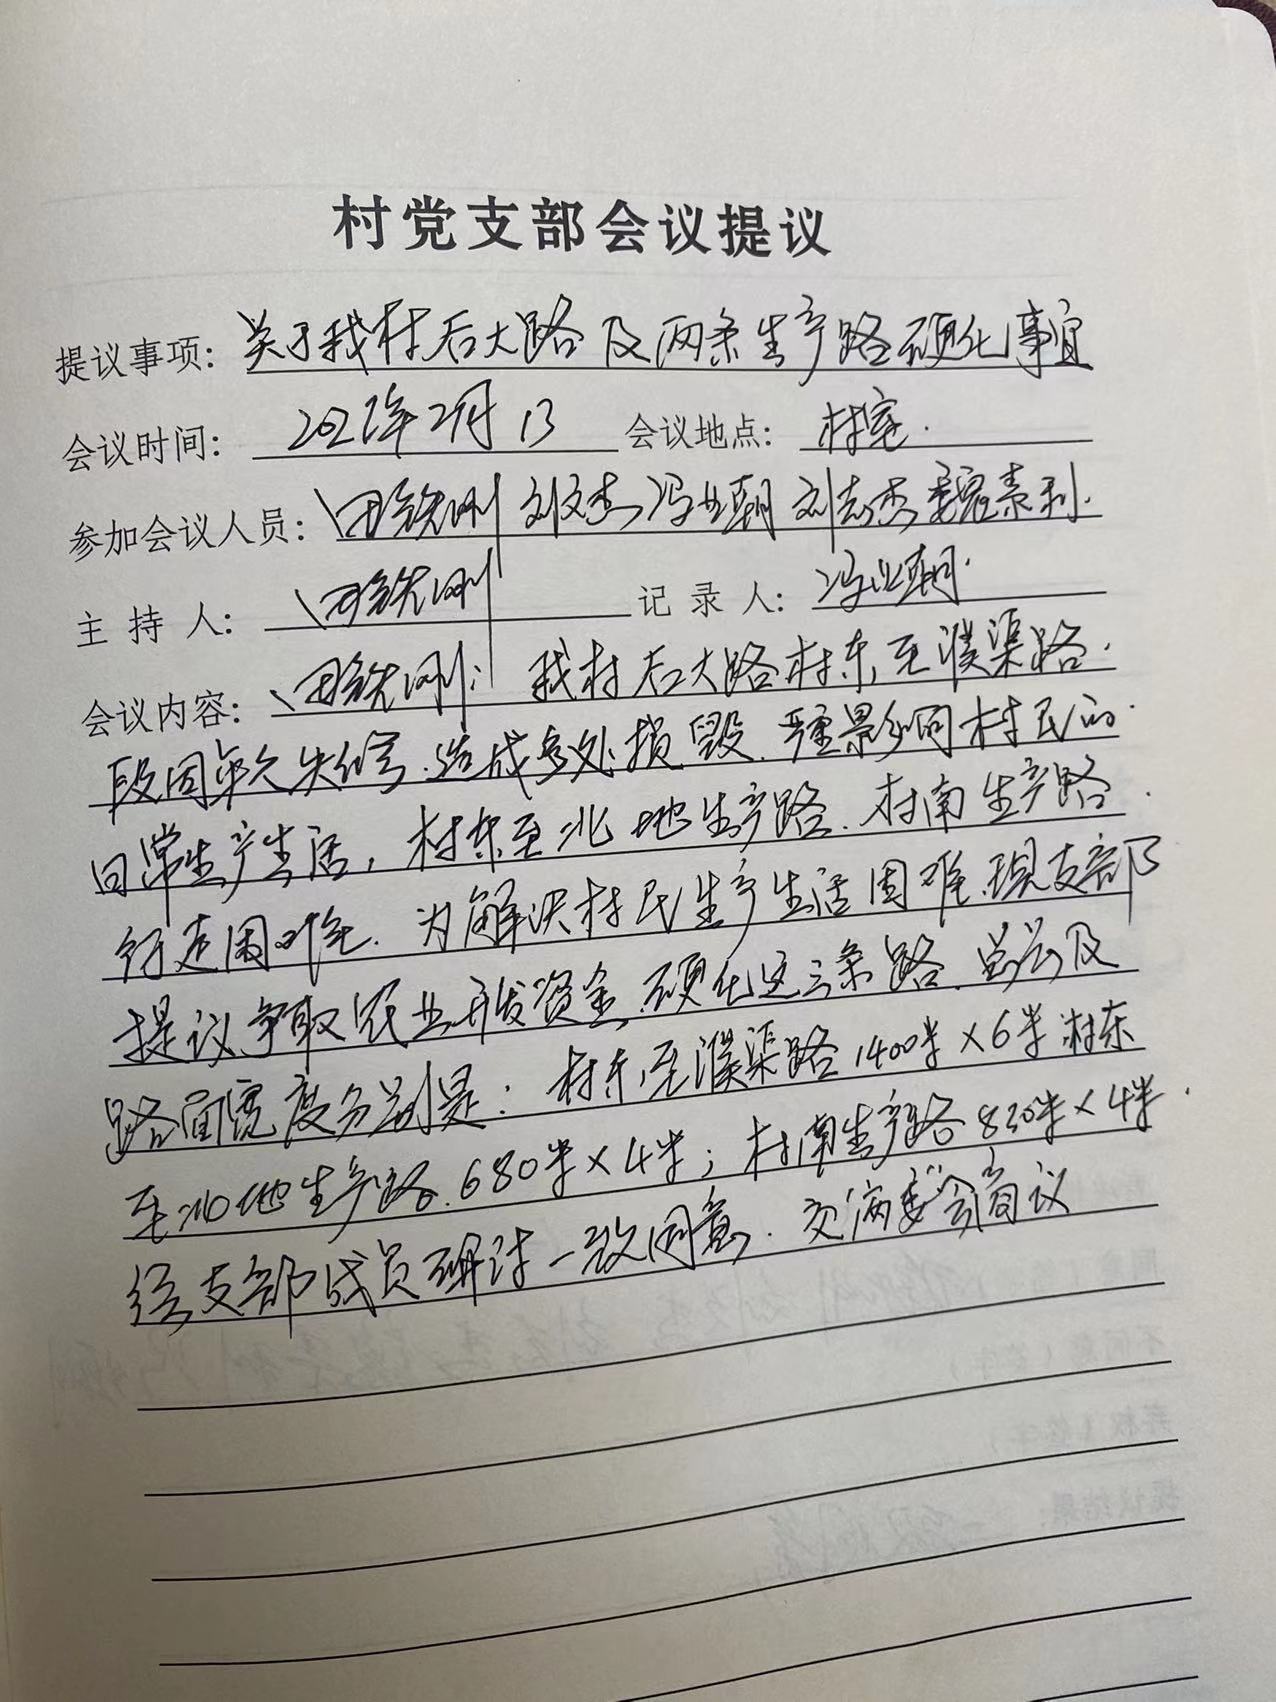 村党支部会议提议
提议事项: 关于我村后大路及两条生产路硬化事宜
会议时间: 年2月13 会议地点: 村室.
参加会议人员: 田铁刚 刘文杰 冯业朝 刘志杰 魏素利.
主持人: 田铁刚 记录人: 冯业朝.
会议内容: 田铁刚: 我村后大路村东至濮渠路.
段因年久失修.造成多处损毁.严重影响村民的.
日常生产生活,村东至北地生产路.村南生产路.
行走困难.为解决村民生产生活困难.现支部
提议争取农业开发资金.硬化这三条路.总长及
路面宽度分别是:村东至濮渠路1400米×6米村东
至北地生产路.680米×4米;村南生产路830米×4米.
经支部成员研讨一致同意.交“两委”会商议